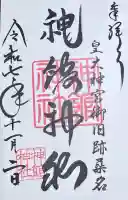 奉拝
皇大神宮御旧跡桑名
神館神社
令和七年十一月二日